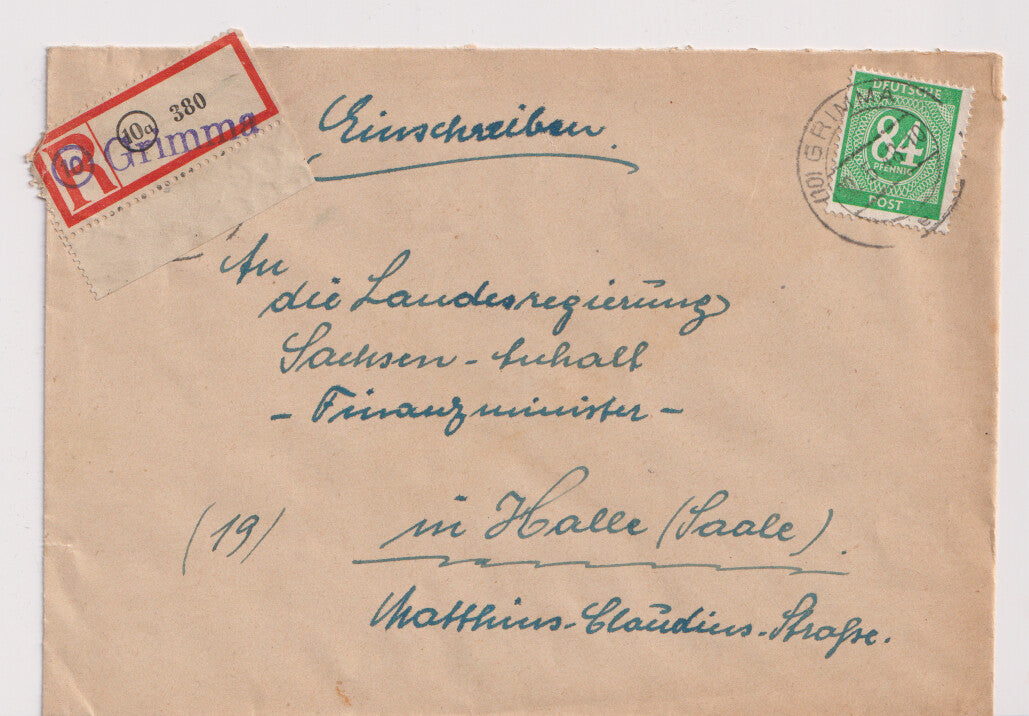 R
10
10a
380
Grimma
Einschreiben.
(10) GRIMMA
DEUTSCHE
84
PFENNIG
POST
An
die Landesregierung
Sachsen-Anhalt
- Finanzminister -
(19)
in Halle (Saale).
Matthias-Claudius-Straße.